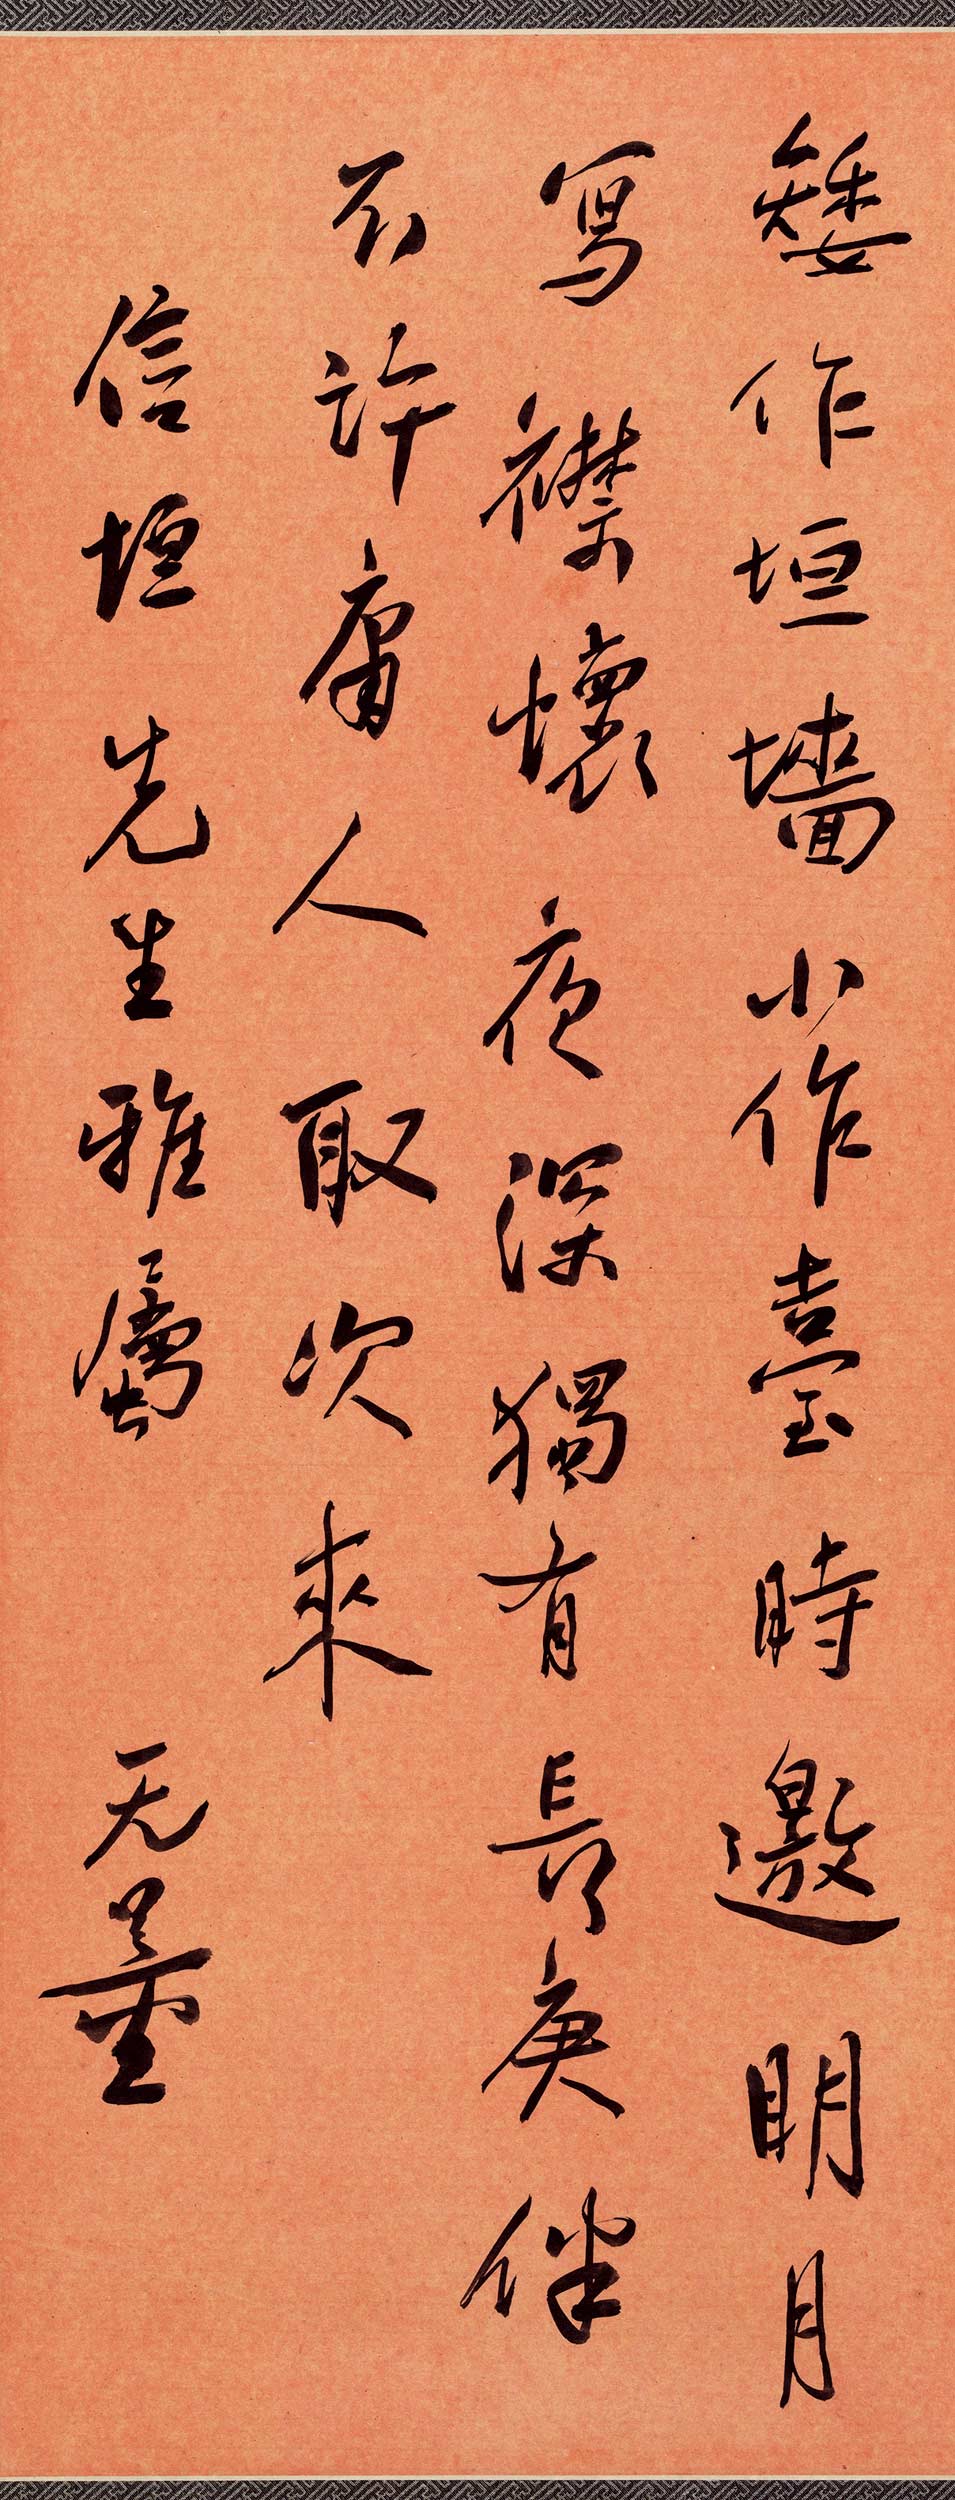 矮作垣墻小作臺時邀明月
寫襟懷夜深獨有長庚伴
不許庸人取次來
信垣先生雅屬 无量